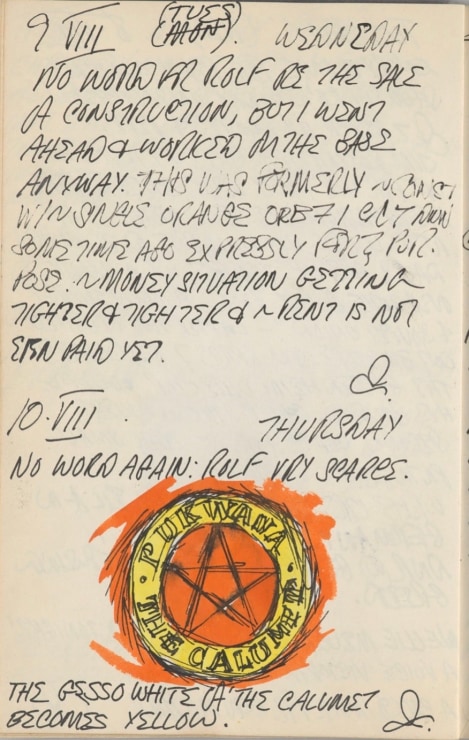 9 VIII (TUES) (MON). WEDNEDAY
NO WORD FR ROLF RE THE SALE
OF A CONSTRUCTION, BUT I WENT
AHEAD & WORKED ON THE BASE
ANYWAY. THIS WAS FORMERLY ~ CONST
W/~ SINGLE ORANGE ORB I CUT DOWN
SOMETIME AGO EXPRESSLY FOR PUR-
POSE. ~ MONEY SITUATION GETTING
TIGHTER & TIGHTER & ~ RENT IS NOT
EVEN PAID YET.
10 VIII THURSDAY
NO WORD AGAIN: ROLF VRY SCARCE.
PUKWANA
THE CALUMET
THE GESSO WHITE OF THE CALUMET
BECOMES YELLOW.